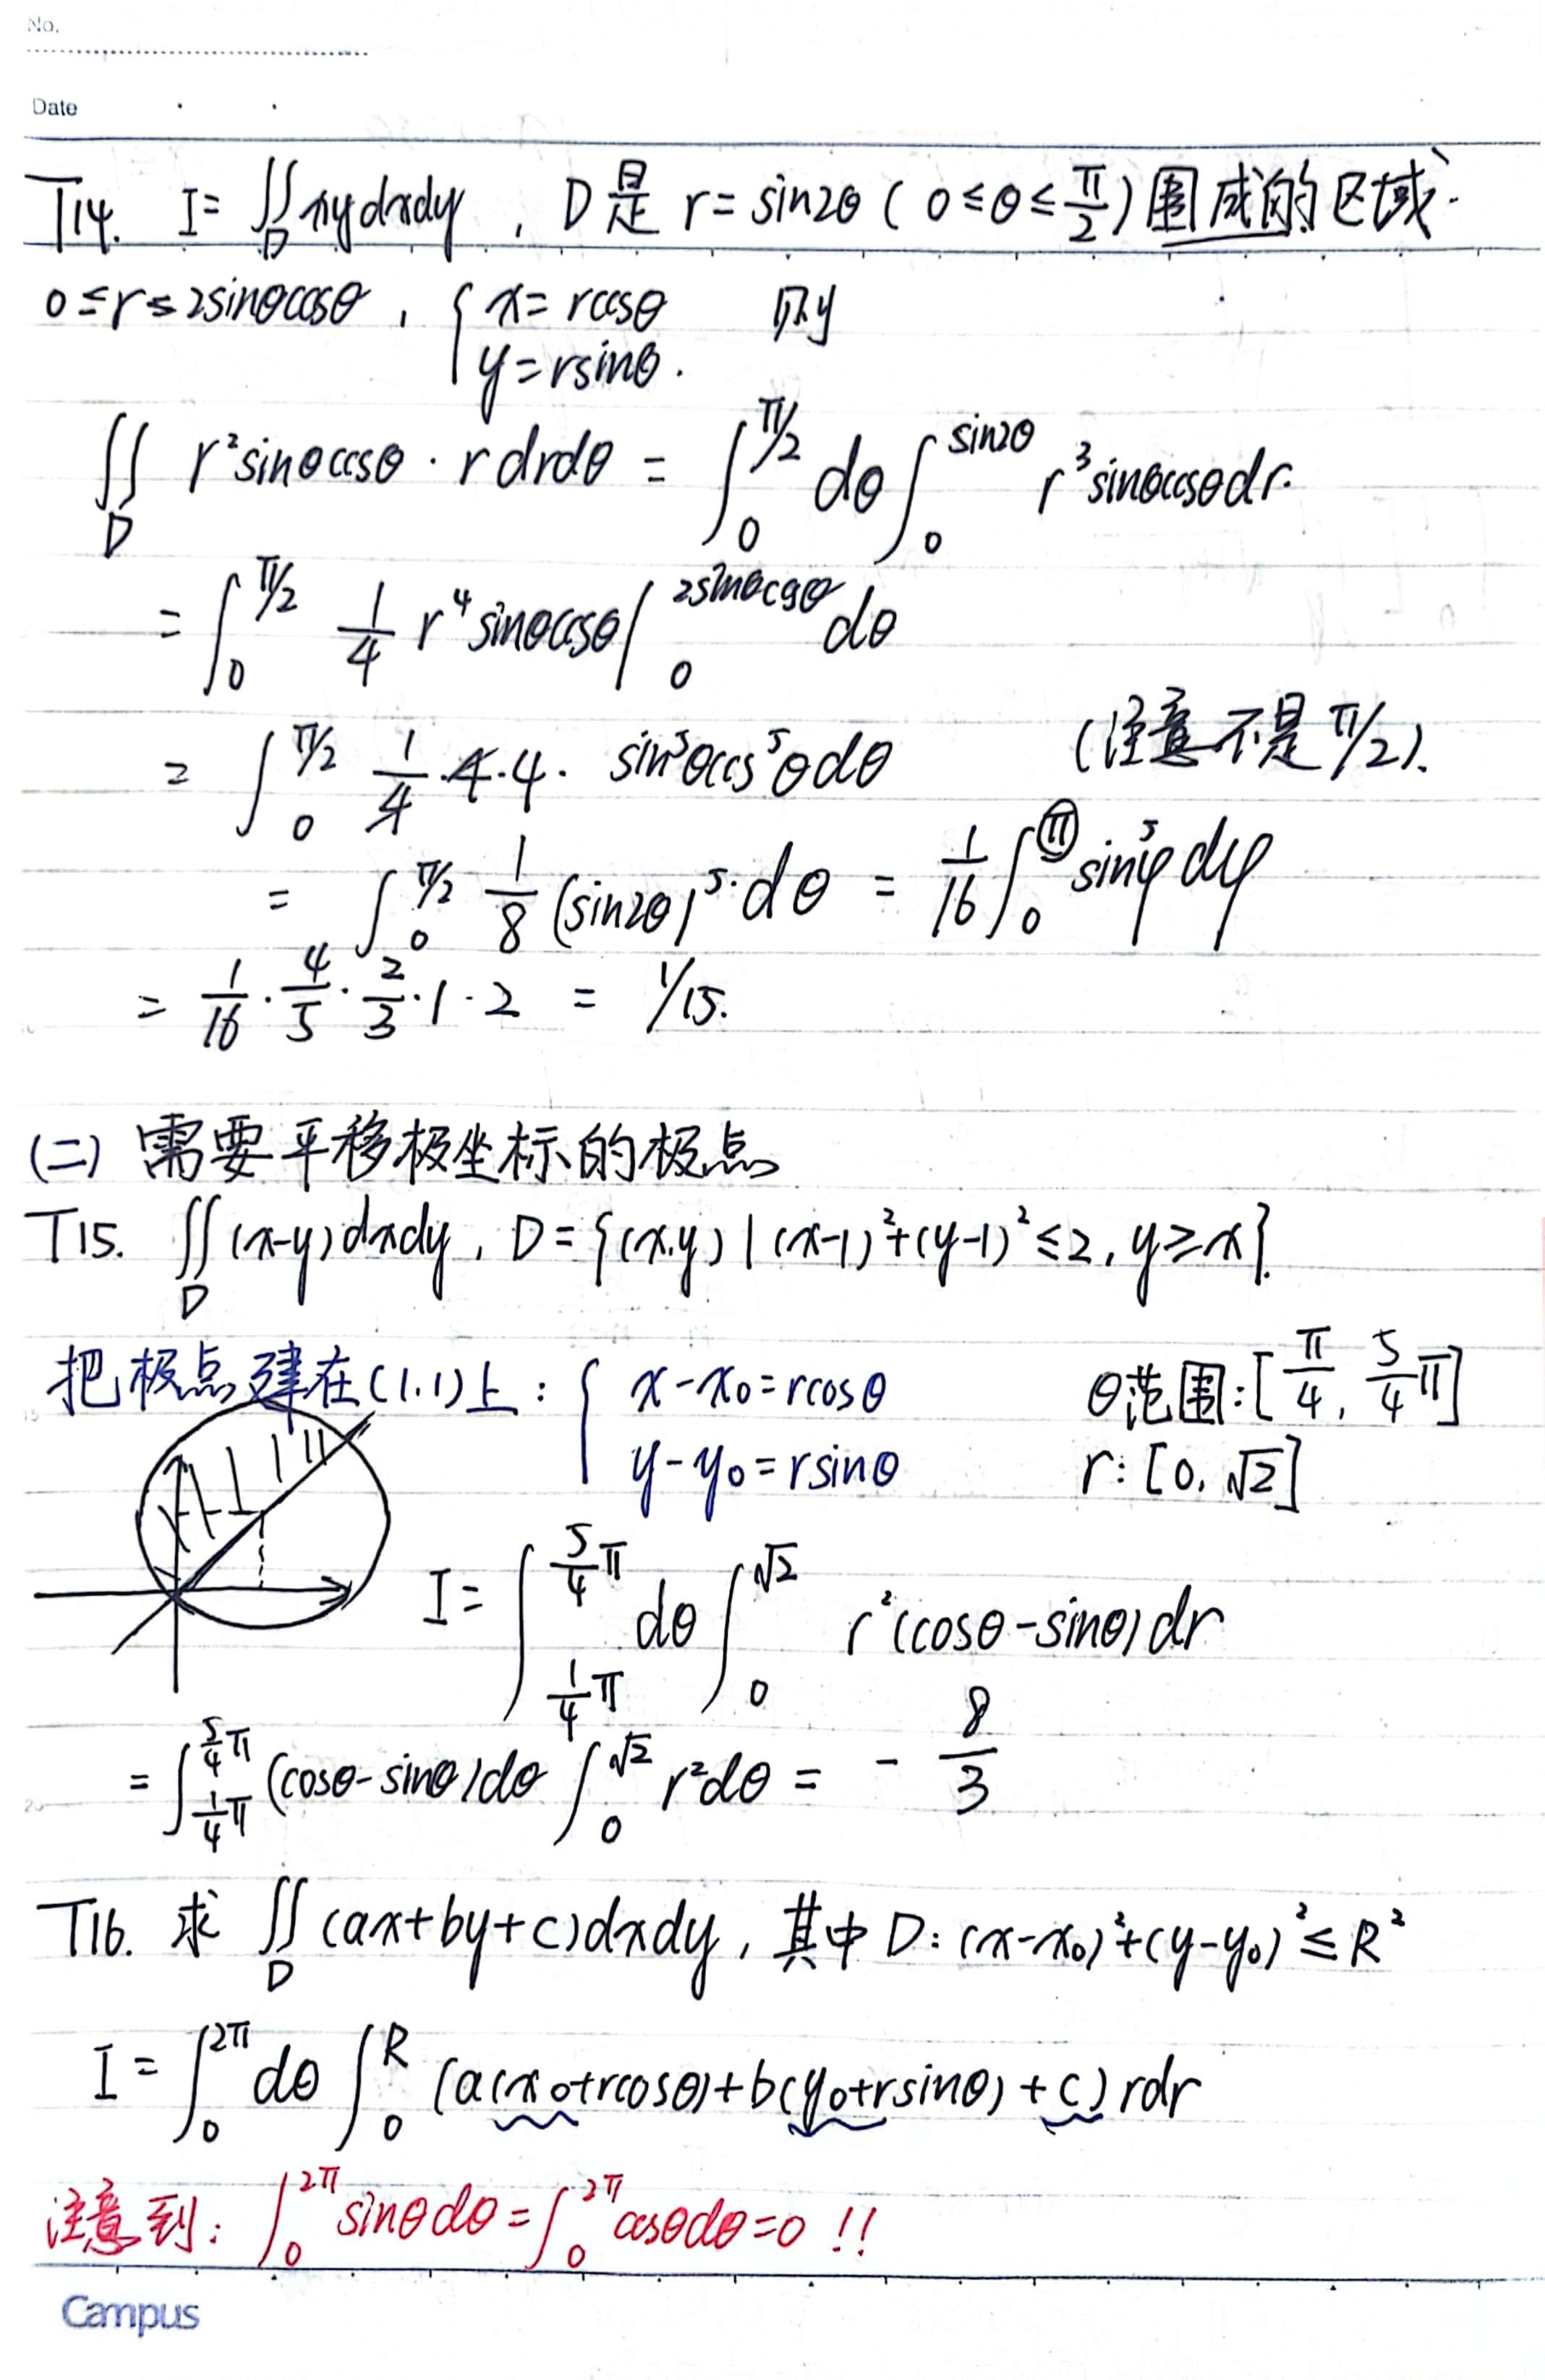 No.
Date
T14. I = ∬_D xydxdy , D是 r = sin2θ ( 0 ≤ θ ≤ π/2 ) 围成的区域.
0 ≤ r ≤ 2sinθcosθ , { x = rcosθ 则
y = rsinθ.
∬_D r²sinθcosθ · r drdθ = ∫_0^{π/2} dθ ∫_0^{sin2θ} r³sinθcosθdr.
= ∫_0^{π/2} 1/4 r⁴sinθcosθ |_0^{2sinθcosθ} dθ
= ∫_0^{π/2} 1/4 · 4 · 4 · sin⁵θcos⁵θdθ (注意不是π/2).
= ∫_0^{π/2} 1/8 (sin2θ)⁵·dθ = 1/16 ∫_0^π sin⁵φdφ
= 1/16 · 4/5 · 2/3 · 1 · 2 = 1/15.
(二) 需要平移极坐标的极点
T15. ∬_D (x-y)dxdy , D = {(x,y) | (x-1)²+(y-1)² ≤ 2, y ≥ x}.
把极点建在(1,1)上 : { x - x₀ = rcosθ θ范围: [π/4, 5/4 π]
y - y₀ = rsinθ r: [0, √2]
I = ∫_{1/4 π}^{5/4 π} dθ ∫_0^{√2} r²(cosθ-sinθ)dr
= ∫_{1/4 π}^{5/4 π} (cosθ-sinθ)dθ ∫_0^{√2} r²dθ = - 8/3
T16. 求 ∬_D (ax+by+c)dxdy , 其中 D: (x-x₀)²+(y-y₀)² ≤ R²
I = ∫_0^{2π} dθ ∫_0^R (a(x₀+rcosθ)+b(y₀+rsinθ)+c) rdr
注意到: ∫_0^{2π} sinθdθ = ∫_0^{2π} cosθdθ = 0 !!
Campus